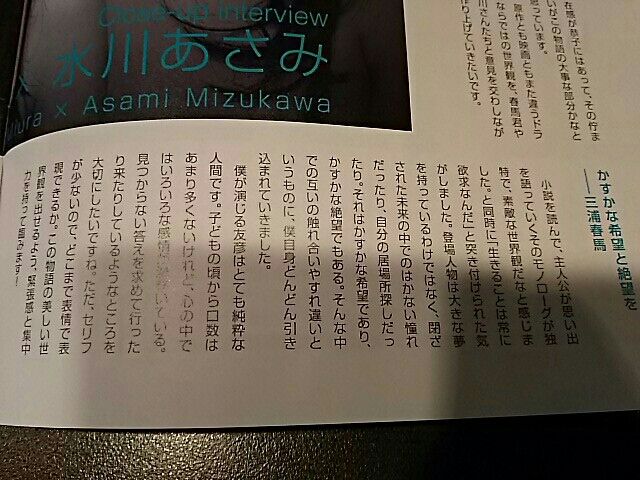 Close-up Interview
× 水川あさみ
Miura × Asami Mizukawa
在感が恭子にはあって、その佇ま
いがこの物語の大事な部分かなと
思っています。
原作とも映画ともまた違うドラ
マならではの世界観を、春馬君や
川さんたちと意見を交わしなが
作り上げていきたいです。
かすかな希望と絶望を
──三浦春馬
小説を読んで、主人公が思い出
を語っていくそのモノローグが独
特で、素敵な世界観だなと感じま
した。と同時に「生きることは常に
欲求なんだ」と突き付けられた気
がしました。登場人物は大きな夢
を持っているわけではなく、閉ざ
された未来の中でのはかない憧れ
だったり、自分の居場所探しだっ
たり。それはかすかな希望であり、
かすかな絶望でもある。そんな中
での互いの触れ合いやすれ違いと
いうものに、僕自身どんどん引き
込まれていきました。
僕が演じる友彦はとても純粋な
人間です。子どもの頃から口数は
あまり多くないけれど、心の中で
はいろいろな感情が渦巻いている。
見つからない答えを求めて行った
り来たりしているようなところを
大切にしたいですね。ただ、セリフ
が少ないので、どこまで表情で表
現できるか。この物語の美しい世
界観を出せるよう、緊張感と集中
力を持って臨みます！